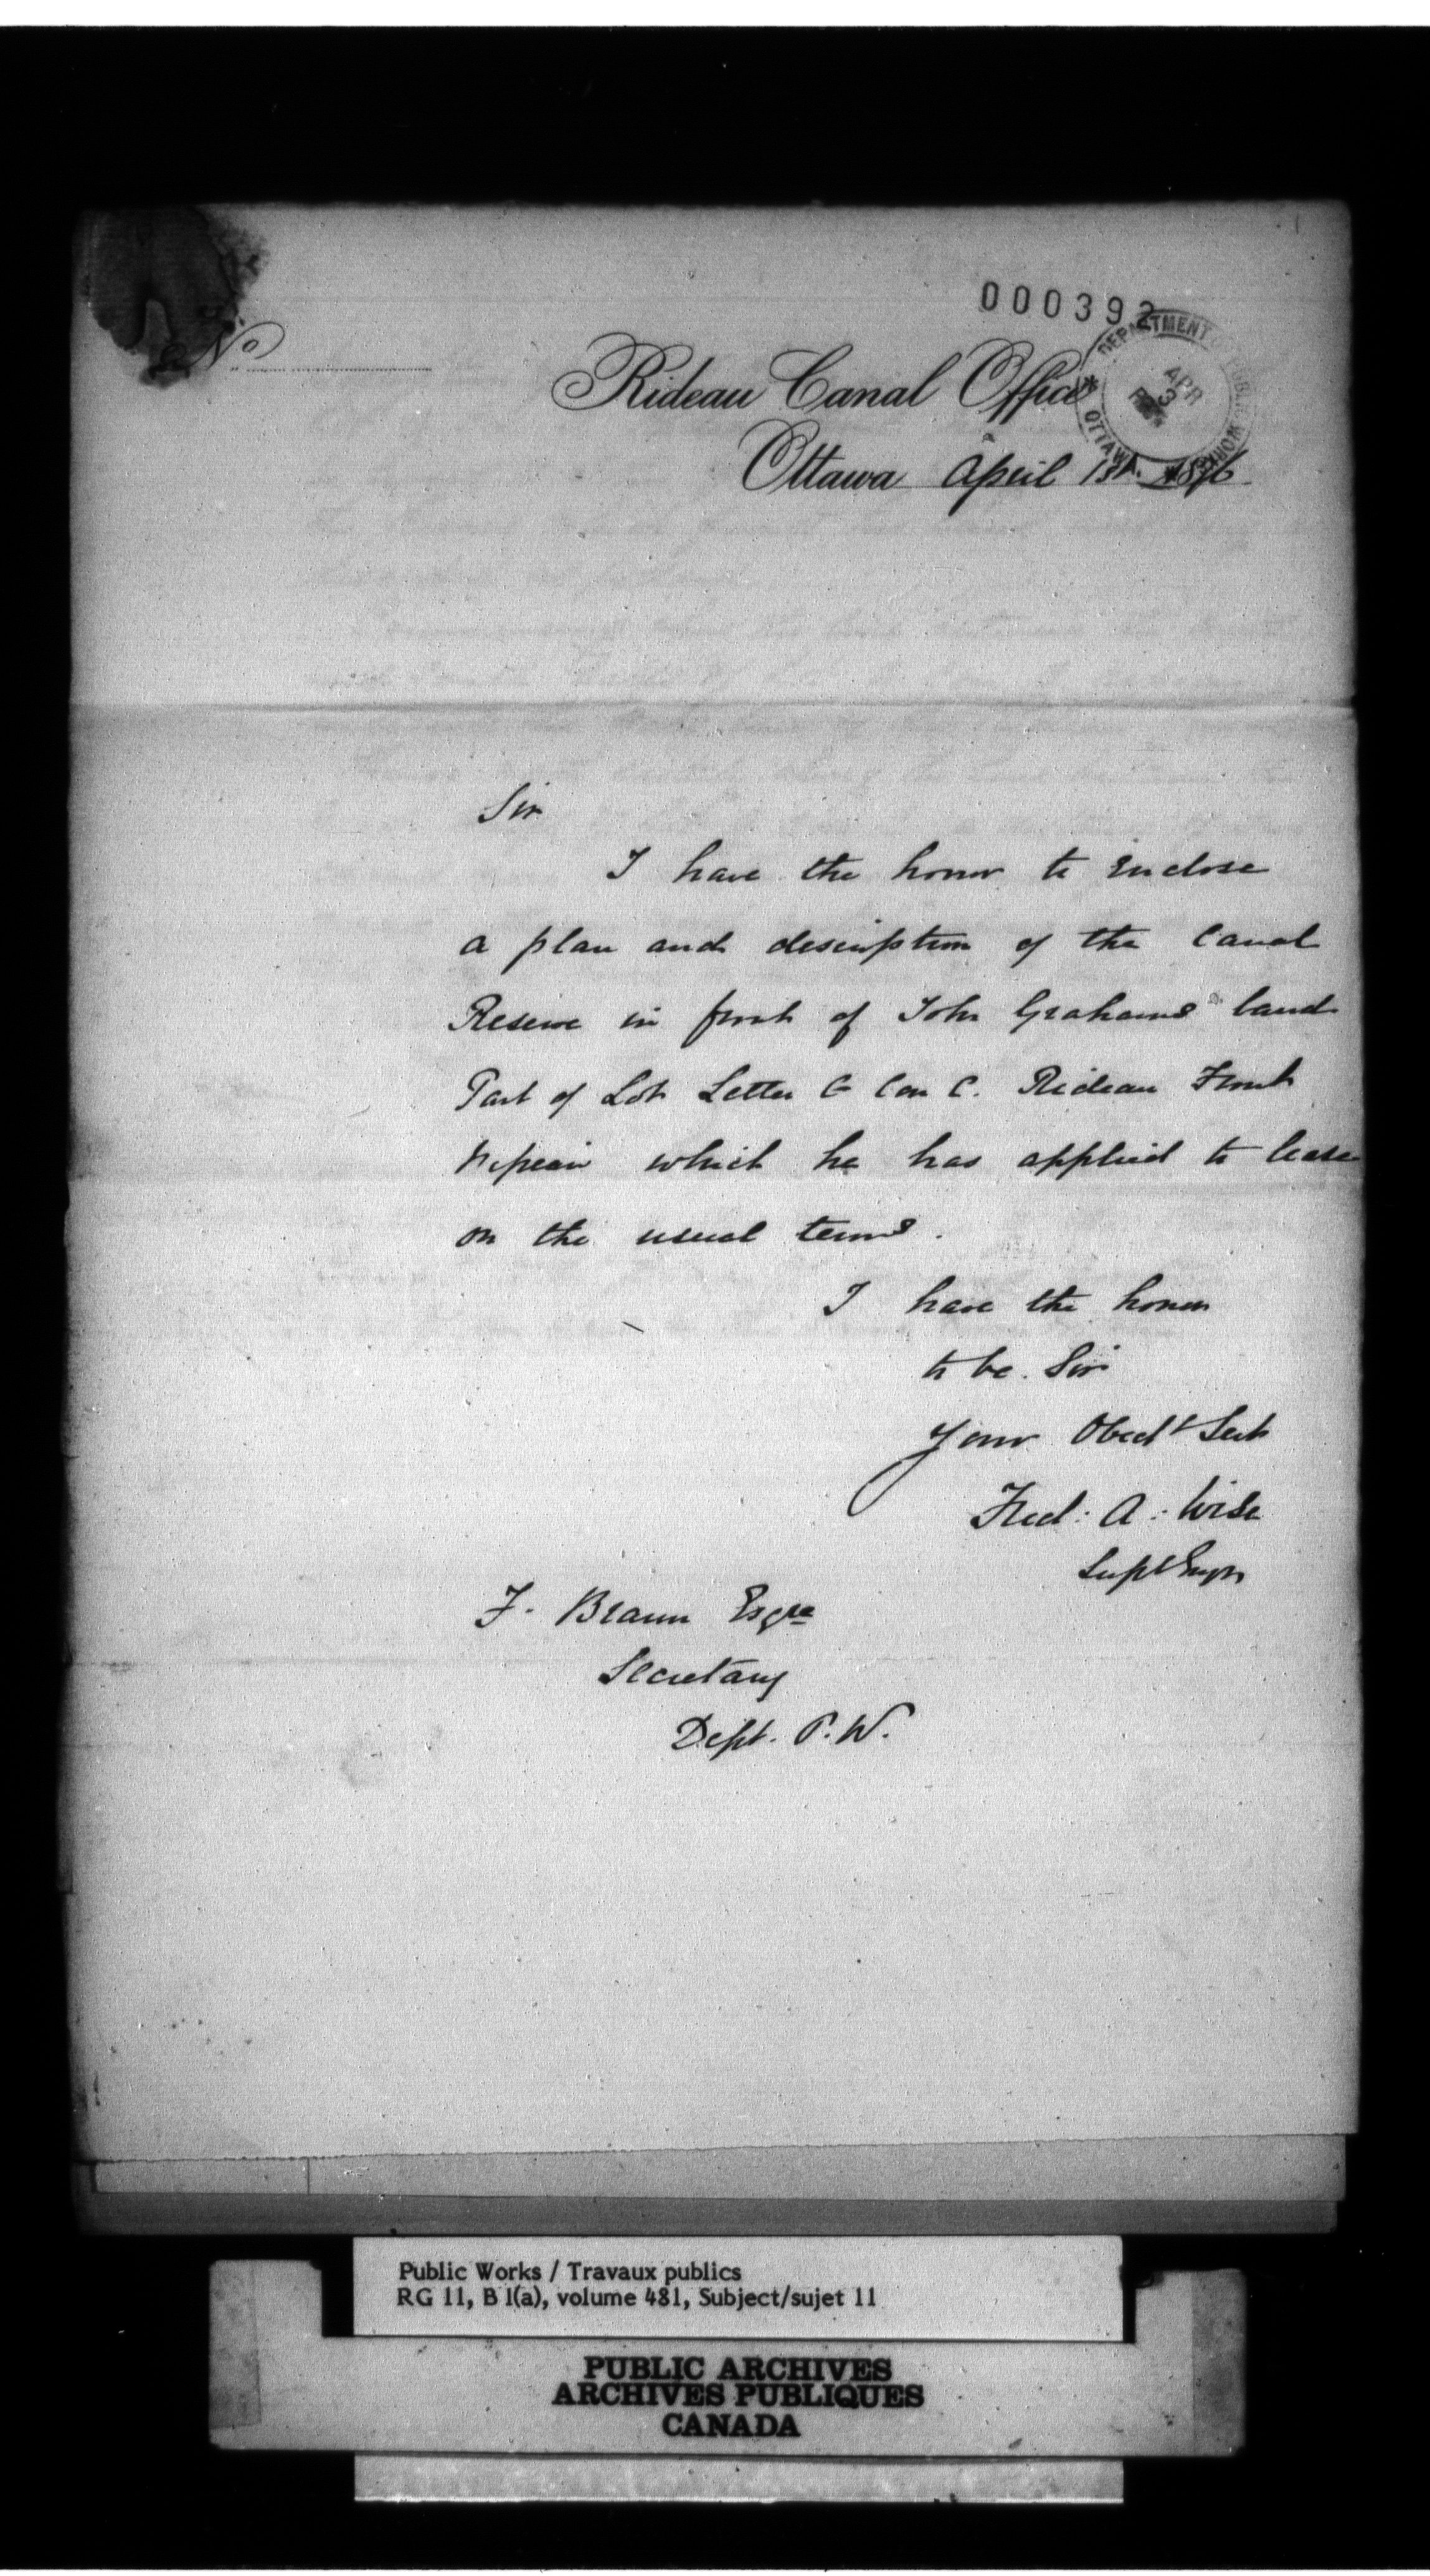 000392
No
Rideau Canal Office
DEPARTMENT OF PUBLIC WORKS
APR 3
OTTAWA
Ottawa April 1st. 1876
Sir
I have the honor to enclose
a plan and description of the Canal
Reserve in front of John Grahams land
Part of Lot Letter G Con C. Rideau Front
Nepean which he has applied to lease
on the usual terms.
I have the honor
to be. Sir
Your Obedt Servt
Fred: A: Wise
Supt Engr
F. Braun Esqre
Secretary
Dept. P.W.
Public Works / Travaux publics
RG 11, B 1(a), volume 481, Subject/sujet 11
PUBLIC ARCHIVES
ARCHIVES PUBLIQUES
CANADA